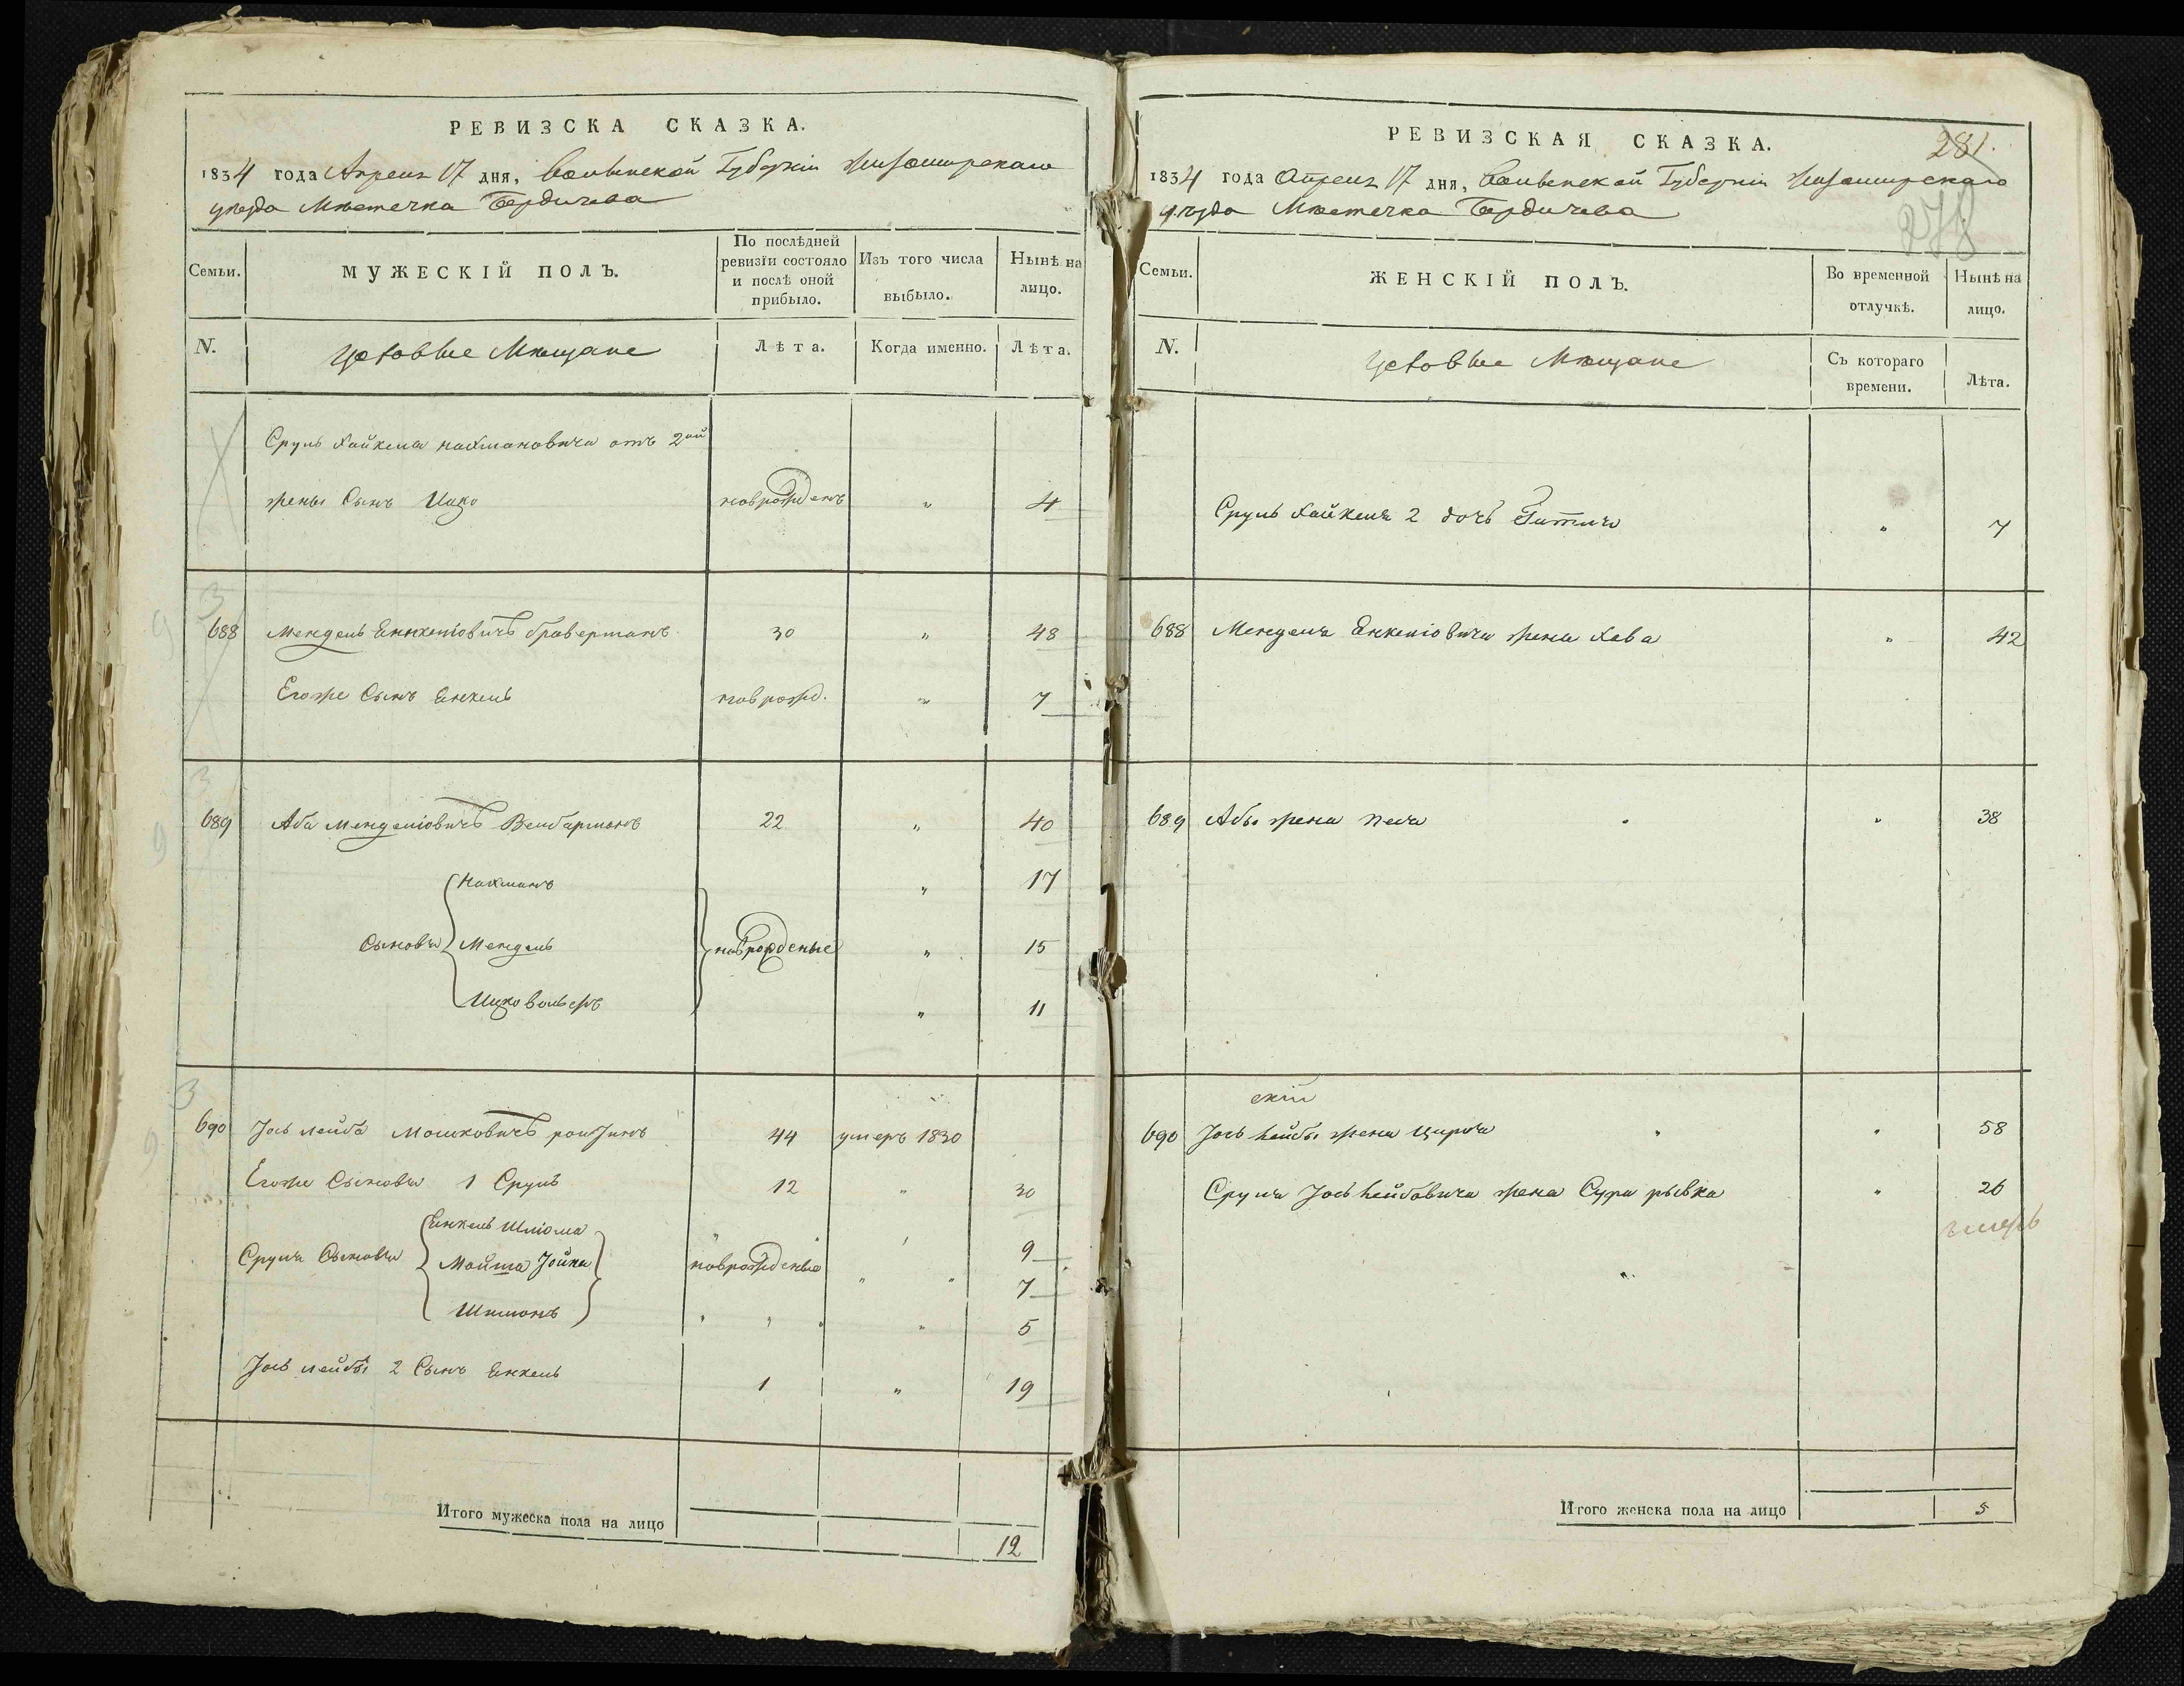 РЕВИЗСКА СКАЗКА.
1834 года Апреля 17 дня, Волынской Губернiи Житомирскаго
уезда Мѣстечка Бердичева
Семьи.
МУЖЕСКІЙ ПОЛЪ.
По послѣдней ревизіи состояло и послѣ оной прибыло.
Изъ того числа выбыло.
Нынѣ на лицо.
N.
Цеховые Мѣщане
Лѣта.
Когда именно.
Лѣта.
Сруль Хайкеля Нахмановича отъ 2ой
жены Сынъ Ицко новрожденъ " 4
688 Мендель Енкелiовичъ Браверманъ 30 " 48
Егоже Сынъ Енкель новрожд. " 7
689 Аба Менделiовичъ 22 " 40
Нахманъ " 17
Сыновья Мендель новрожденые " 15
Ицко " 11
690 Іось Лейба Мошковичъ 44 умеръ 1830
Егоже Сыновья 1 Сруль 12 " 30
Енкель Шлiома " 9
Сруля Сыновья Іойна новрожденые " 7
Шимонъ " 5
Іось Лейбы 2 Сынъ Енкель 1 " 19
Итого мужеска пола на лицо 12
РЕВИЗСКАЯ СКАЗКА.
281.
278
1834 года Апреля 17 дня, Волынской Губернiи Житомирскаго
уезда Мѣстечка Бердичева
Семьи.
ЖЕНСКІЙ ПОЛЪ.
Во временной отлучкѣ.
Нынѣ на лицо.
N.
Цеховые Мѣщане
Съ котораго времени.
Лѣта.
Сруль Хайкеля 2 дочь " 7
688 Менделя Енкелiовича жена Хава " 42
689 Абы жена Песя " 38
690 Іось Лейбы жена " 58
Сруля Іось Лейбовича жена Сура Рывка " 26
Итого женска пола на лицо 5